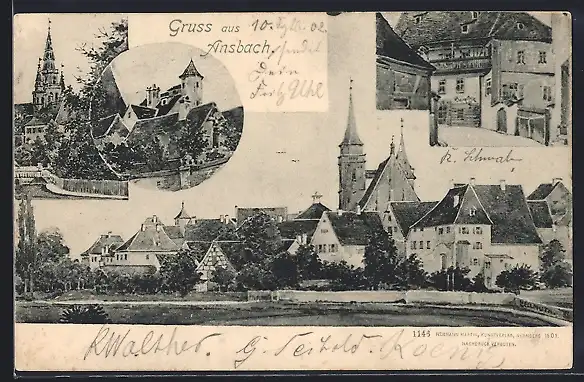 Gruss aus
Ansbach,
10. 02.
sendet
Dein
Fritz Uhl
R. Schwab
1144 HERMANN MARTIN, KUNSTVERLAG, NÜRNBERG 1901.
NACHDRUCK VERBOTEN.
KWalther. G. Seibold.